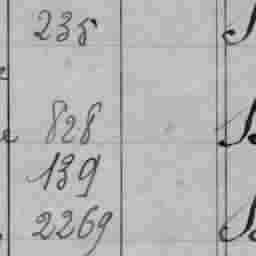 235
828
139
2269